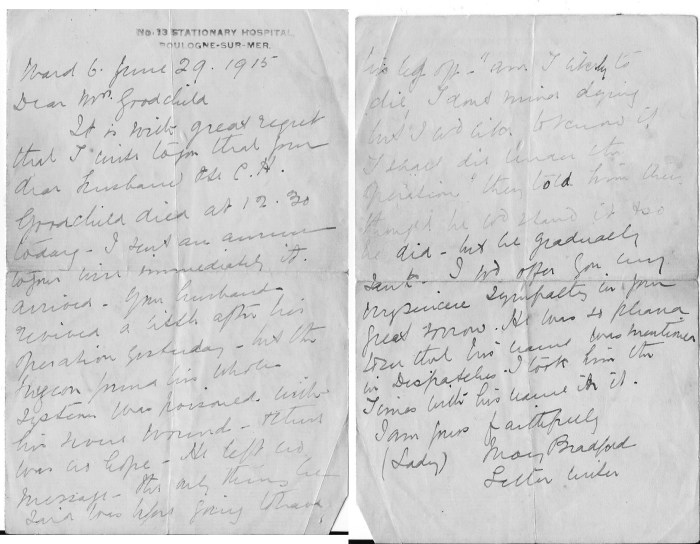 No. 13 STATIONARY HOSPITAL
BOULOGNE-SUR-MER.
Ward 6. June 29. 1915
Dear Mrs. Goodchild
It is with great regret
that I write to you that your
dear husband Pte C. H.
Goodchild died at 12.30
today - I sent an answer
to your wire immediately it
arrived - Your husband
revived a little after his
operation yesterday - but the
surgeon found his whole
system was poisoned with
his severe wound - & there
was no hope - He left no
message - the only thing he
said was before going to have
his leg off - "am I likely to
die, I don't mind dying
but I wd like to know if
I shall die under the
operation" they told him they
thought he wd stand it & so
he did - but he gradually
sank. I wd offer you my
very sincere sympathy in your
great sorrow. He was so pleased
to see that his name was mentioned
in Dispatches. I took him the
Times with his name in it.
I am yours faithfully
(Lady) Mary Bradford
Letter writer